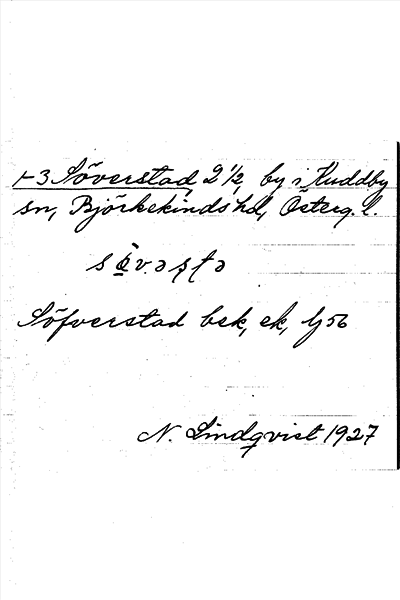 1-3 Söverstad, 2 1/2, by i Kuddby
sn, Björkekinds hd, Österg. l.
Söfverstad bek, ek, Lj 56
N. Lindqvist 1927